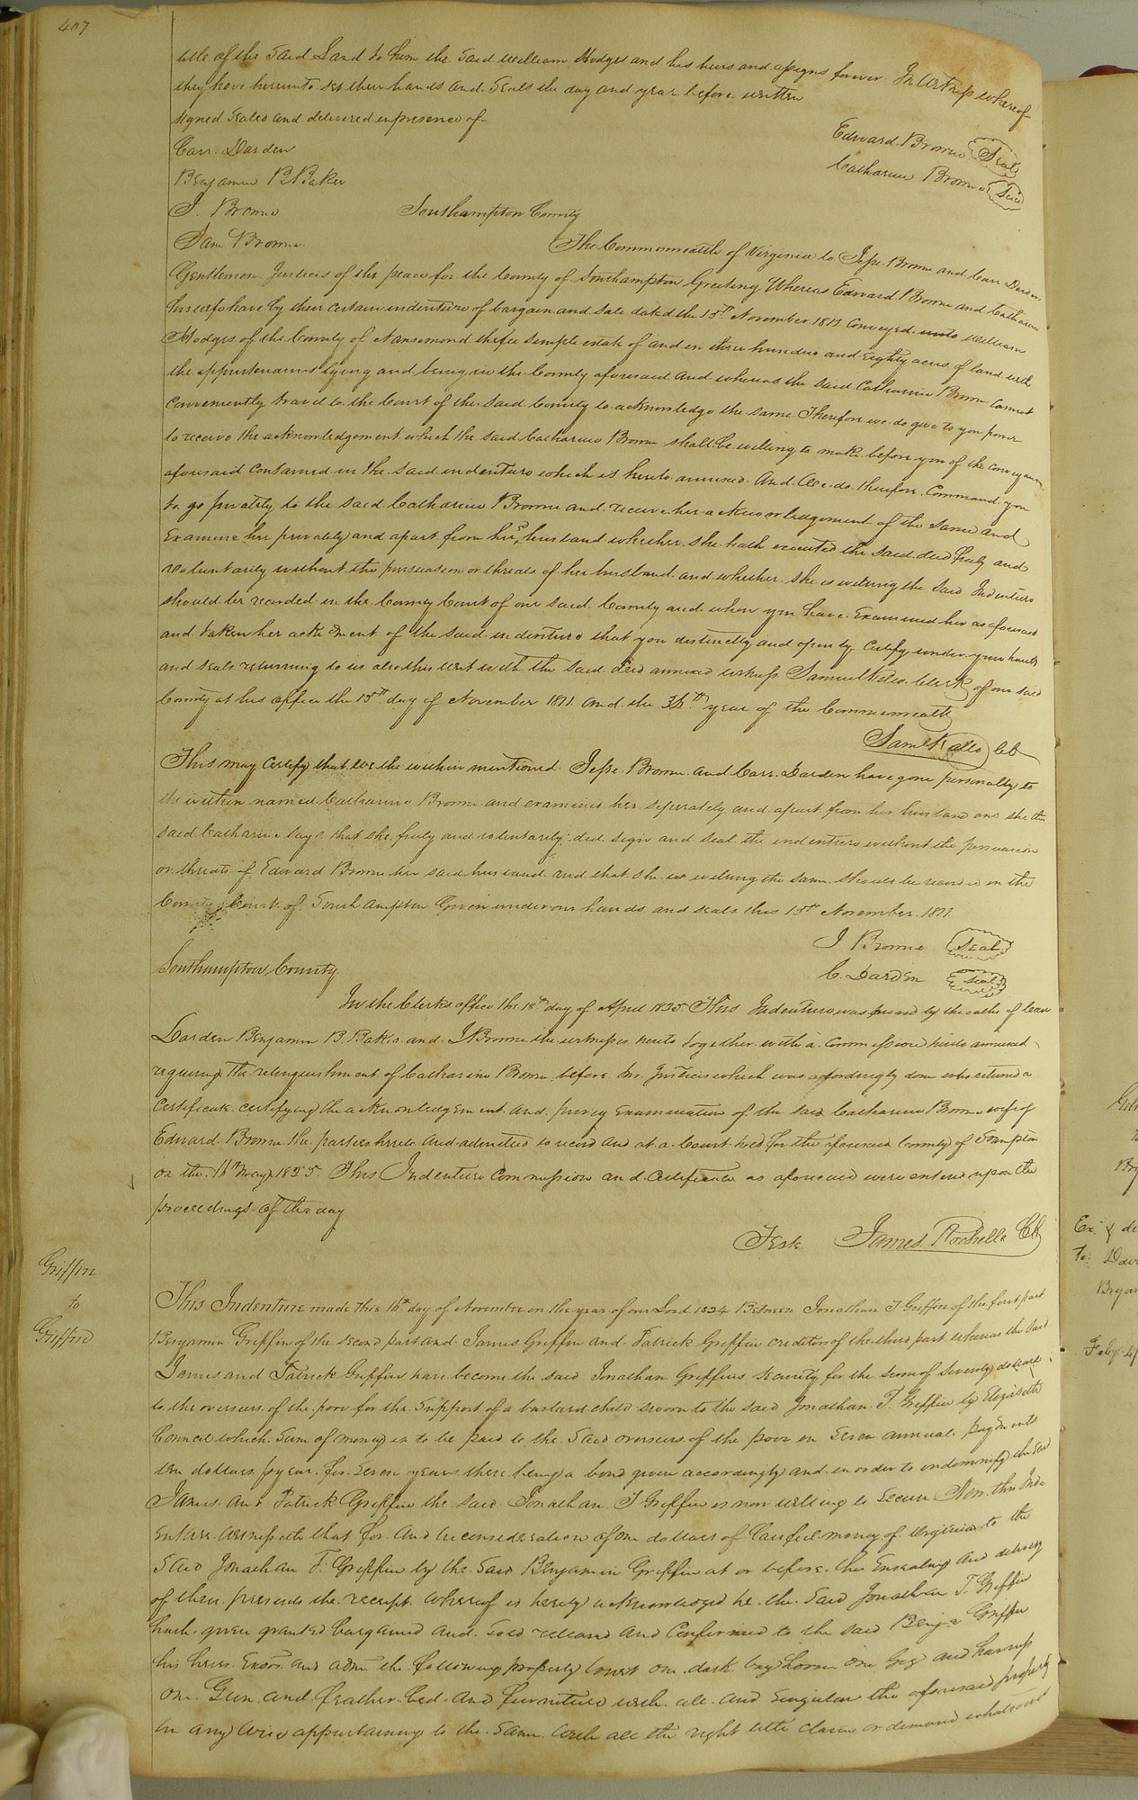 407
title of the said Land to him the said William Hodges and his heirs and assigns forever. In Witness whereof
they have hereunto set their hands and seals the day and year before written
signed sealed and delivered in presence of
Edward Browne Seal
Carr Darden
Catharine Browne Seal
Benjamin B Baker
J. Browne
Southampton County
Sam Browne
The Commonwealth of Virginia to Jesse Browne and Carr Darden
Gentlemen Justices of the peace for the County of Southampton Greeting Whereas Edward Browne and Catharine
his wife have by their certain indenture of bargain and sale dated the 15th November 1811 Conveyed unto William
Hodges of the County of Nansemond the fee simple estate of and in three hundred and Eighty acres of land with
the appurtenances lying and being in the County aforesaid and whereas the said Catharine Browne Cannot
Conveniently travel to the Court of the said County to acknowledge the same Therefore we do give to you power
to receive the acknowledgement which the said Catharine Browne shall be willing to make before you of the conveyance
aforesaid Contained in the said indenture which is hereto annexed And We do therefore Command you
to go privately to the said Catharine Browne and receive her acknowledgement of the same and
Examine her privately and apart from her husband whether she hath executed the said deed freely and
voluntarily without the persuasion or threats of her husband and whether she is willing the said Indenture
should be recorded in the County Court of our said County and when you have Examined her as aforesaid
and taken her acknment of the said indenture that you distinctly and openly Certify under your hands
and seals returning to us also this writ with the said deed annexed witness Samuel Kello Clerk of our said
County at his office the 15th day of November 1811 and the 36th year of the Commonwealth
Saml Kello Clk
This may Certify that we the within mentioned Jesse Browne and Carr Darden have gone personally to
the within named Catharine Browne and examined her seperately and apart from her husband and she the
said Catharine says that she freely and voluntarily did sign and seal the indenture without the persuasion
or threats of Edward Browne her said husband and that she is willing the same should be record in the
County Court of Southampton Given under our hands and seals this 15th November 1811
J Browne Seal
C. Darden Seal
Southampton County
In the Clerks office the 18th day of April 1835 This Indenture was proved by the oaths of Carr
Darden Benjamin B. Baker and J Browne the witnesses hereto together with a Commission hereto annexed
requiring the relinquishment of Catharine Browne before two Justices which was accordingly done who returned a
Certificate certifying the acknowledgement and privey Examination of the said Catharine Browne wife of
Edward Browne the parties hereto and admitted to record and at a Court held for the aforesaid County of Sampton
on the May 1835 This Indenture Commission and Certificate as aforesaid were entered upon the
proceedings of the day
Teste James Rochelle Clk
Griffin
to
Griffin
This Indenture made this 16th day of November in the year of our Lord 1834 Between Jonathan T Griffin of the first part
Benjamin Griffin of the second part and James Griffin and Patrick Griffin creditors of the third part whereas the said
James and Patrick Griffin have become the said Jonathan Griffins security for the sum of Seventy dollars
to the overseers of the poor for the support of a bastard child sworn to the said Jonathan T. Griffin by Elizabeth
Council which sum of money is to be paid to the said overseers of the poor in seven annual payments
ten dollars pr year for seven years there being a bond given accordingly and in order to indemnify the said
James and Patrick Griffin the said Jonathan T Griffin is now willing to secure Now this Inde-
enture witnesseth that for and in consideration of one dollars of lawful money of Virginia to the
said Jonathan T. Griffin by the said Benjamin Griffin at or before the Ensealing and delivery
of these presents the receipt whereof is hereby acknowledged he the said Jonathan T. Griffin
hath given granted bargained and sold released and Confirmed to the said Benja Griffin
his heirs Exors and adms the following property to wit one dark bay horse one Gig and harness
one Gun and feather bed and furniture with all and singular the aforesaid property
in any wise appertaining to the same with all the right title claim or demand whatsoever